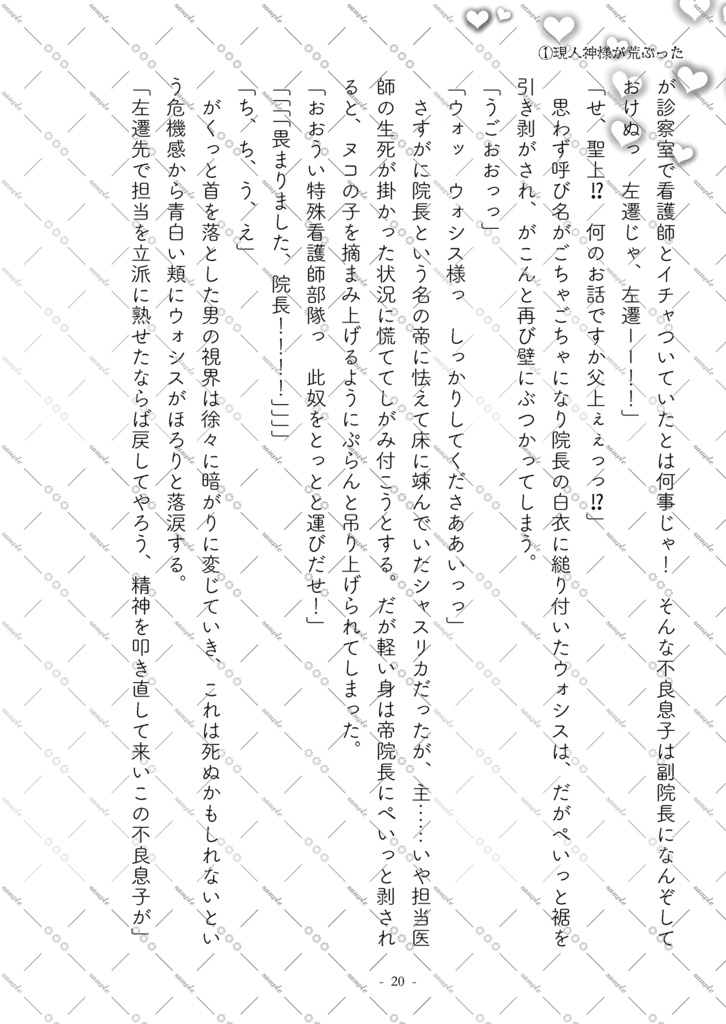 ①現人神様が荒ぶった
が診察室で看護師とイチャついていたとは何事じゃ！　そんな不良息子は副院長になんぞして
おけぬっ　左遷じゃ、左遷ーー！！」
「せ、聖上⁉　何のお話ですか父上ぇぇっっ⁉」
　思わず呼び名がごちゃごちゃになり院長の白衣に縋り付いたウォシスは、だがぺいっと裾を
引き剥がされ、がこんと再び壁にぶつかってしまう。
「うごおおっっ」
「ウォッ　ウォシス様っ　しっかりしてくださああいっっ」
　さすがに院長という名の帝に怯えて床に竦んでいたシャスリカだったが、主……いや担当医
師の生死が掛かった状況に慌ててしがみ付こうとする。だが軽い身は帝院長にぺいっと剥され
ると、ヌコの子を摘まみ上げるようにぷらんと吊り上げられてしまった。
「おおうい特殊看護師部隊っ　此奴をとっとと運びだせ！」
「「「「畏まりました、院長！！！！」」」」
「ち、ち、う、え」
　がくっと首を落とした男の視界は徐々に暗がりに変じていき、これは死ぬかもしれないとい
う危機感から青白い頬にウォシスがほろりと落涙する。
「左遷先で担当を立派に熟せたならば戻してやろう、精神を叩き直して来いこの不良息子が」
- 20 -
sample